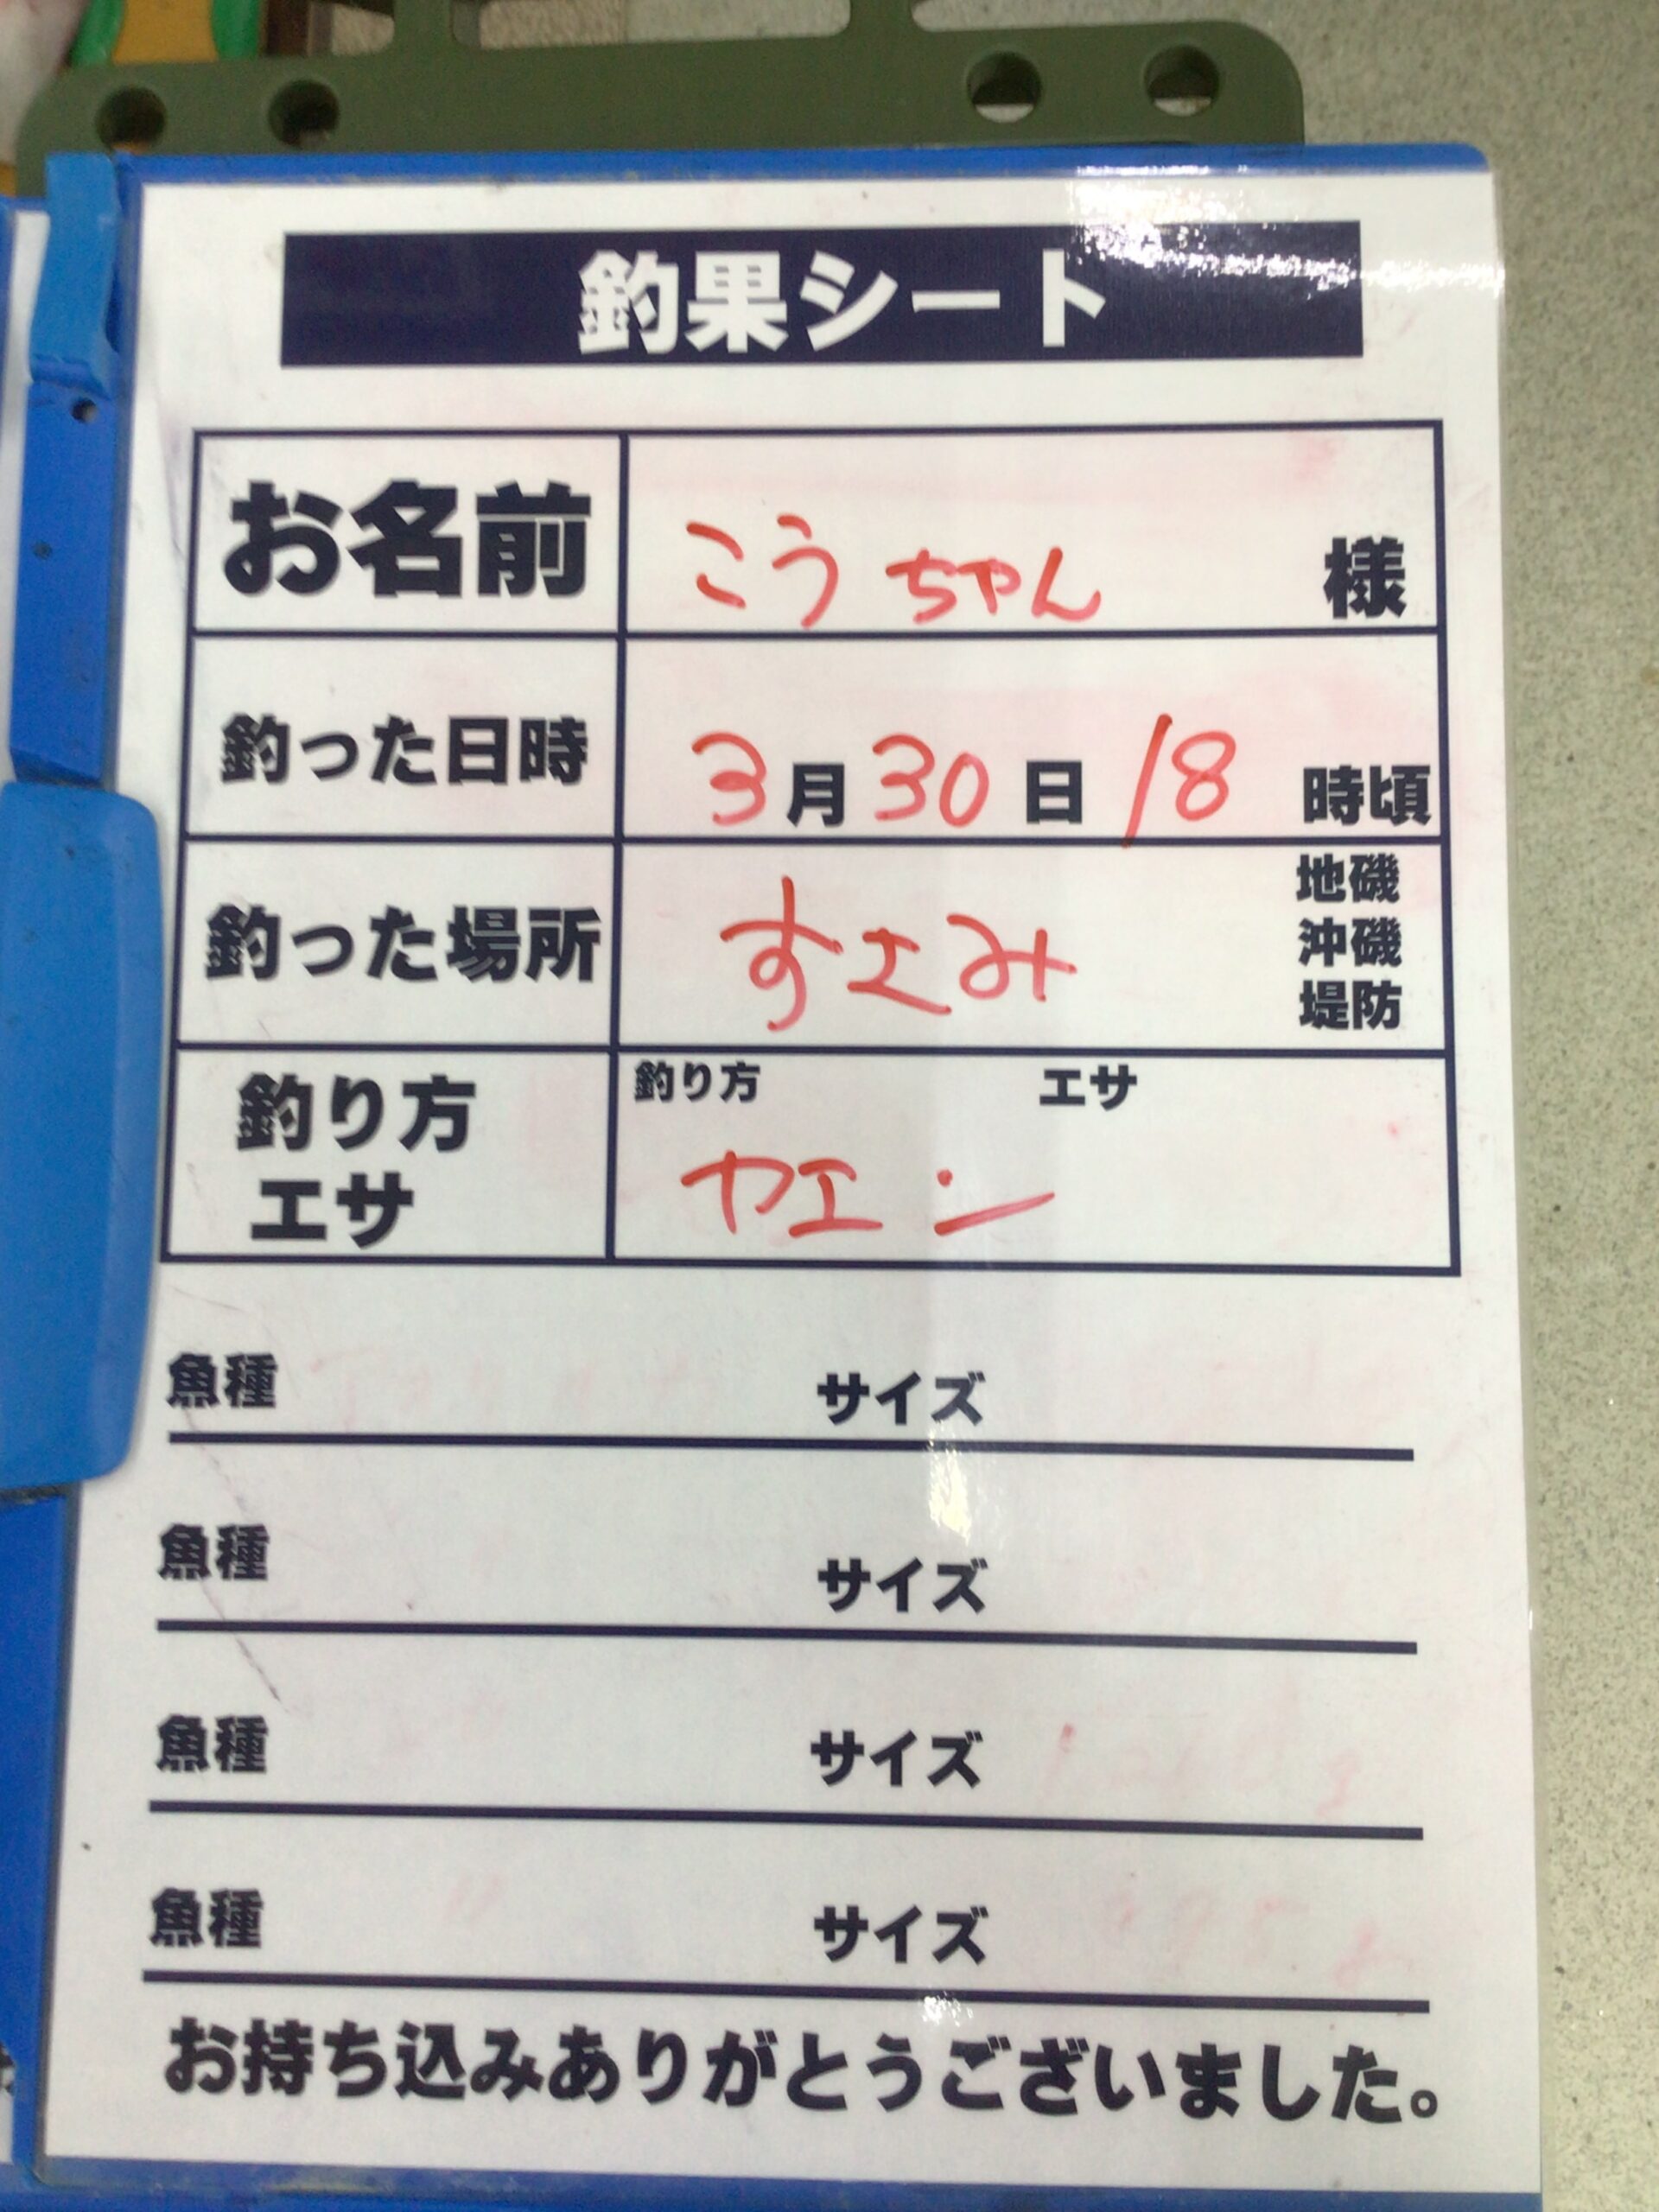 釣果シート
お名前 こうちゃん 様
釣った日時 3月30日 18時頃
釣った場所 すさみ 地磯
沖磯
堤防
釣り方 エサ
釣り方
エサ
ヤエン
魚種 サイズ
魚種 サイズ
魚種 サイズ
魚種 サイズ
お持ち込みありがとうございました。